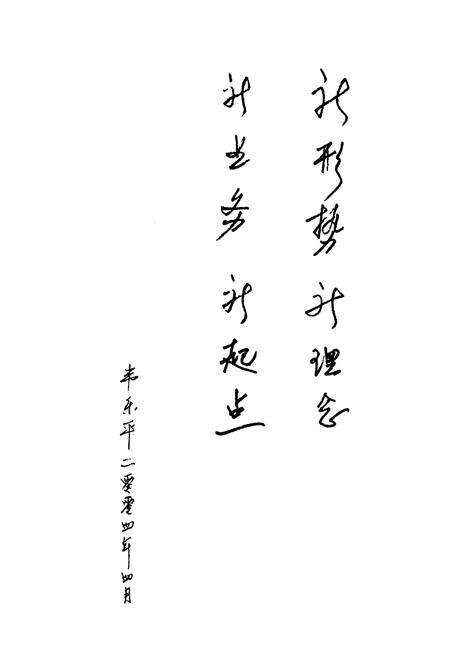 新形势 新理念
新业务 新起点
韦乐平 二零零四年四月